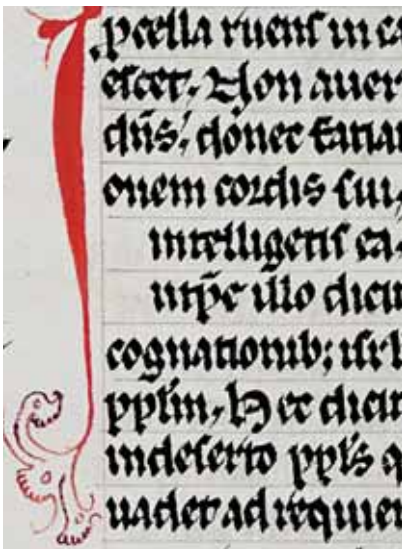 I
pcella ruens in ca
escet. Non auer
dn̄s. donec faciat
onem cordis sui.
intelligetis ea.
ntp̄e illo dicit
cognationib; isrl
pplm̄. Hec dicit
indeserto ppl̄s q
uadet ad requiem